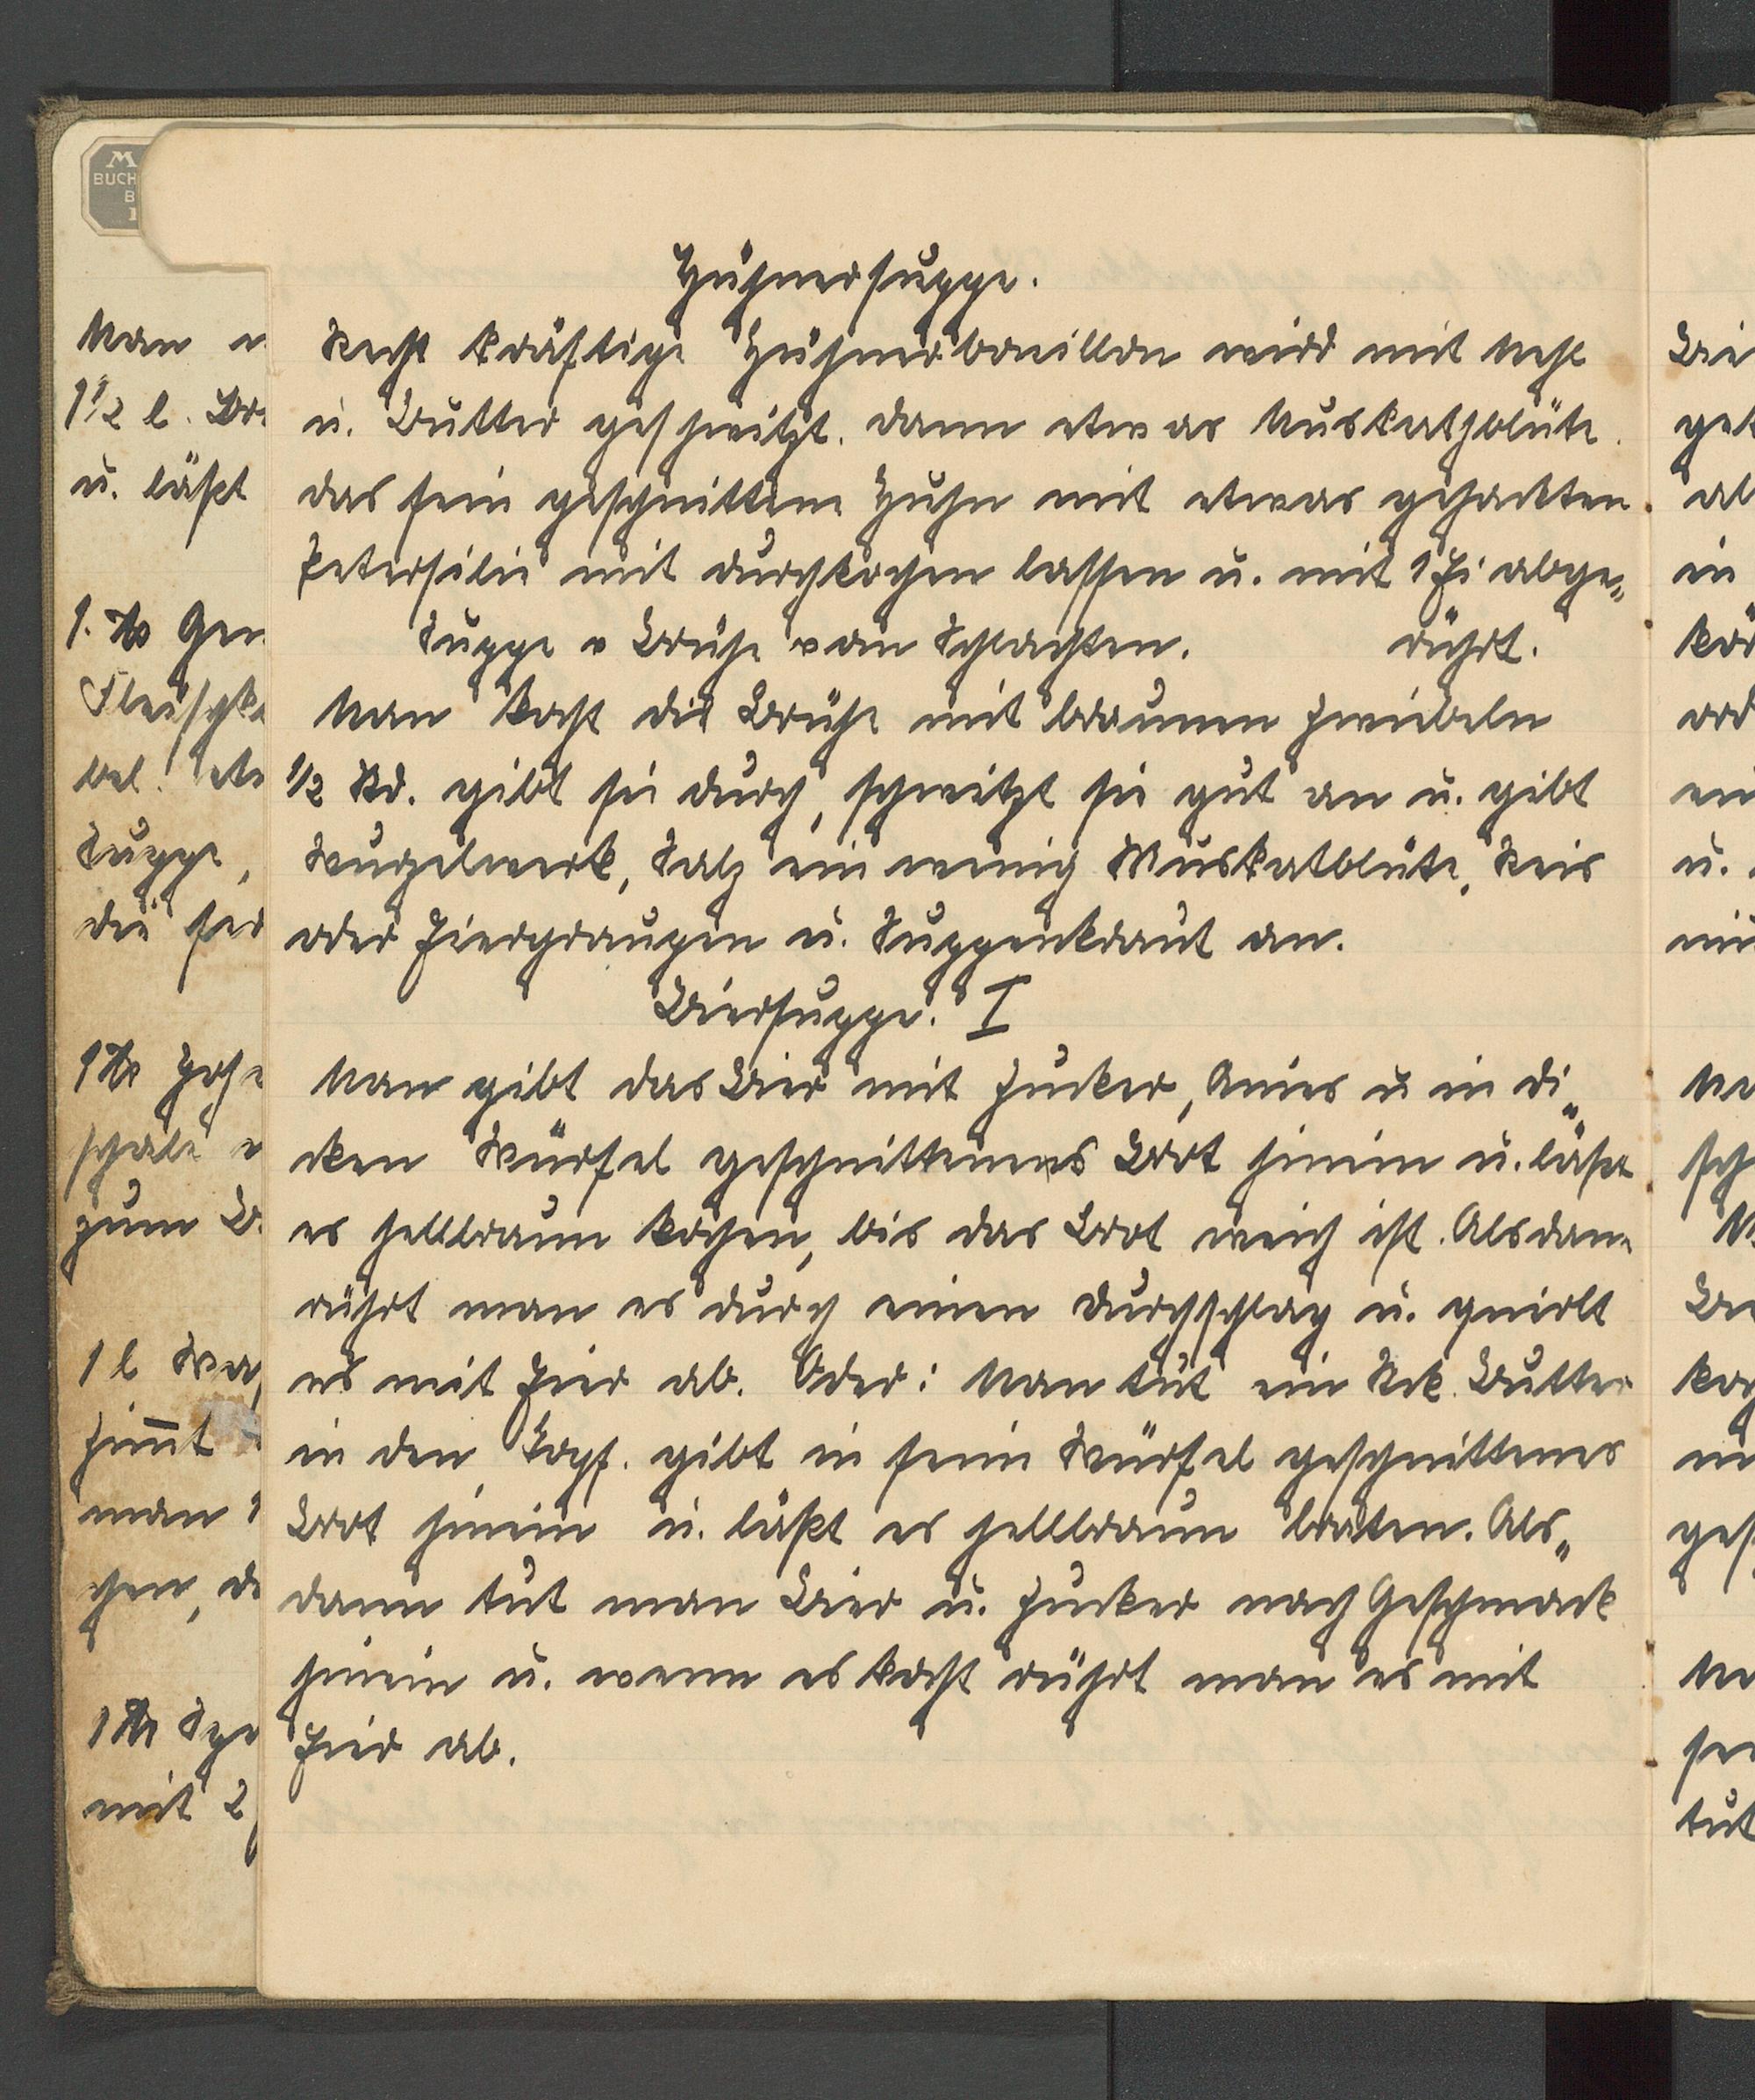 M
BUCH
B
Man
1 1/2 l. Br.
u. läßt
1. ℔ Gen
Fleischb
bel. etw
Suppe,
die fer
1 ℔
schale
zum B.
1 l Wa
Zimt
man
gen, de
1 ℔
mit 2
Hühnersuppe.
Recht kräftige Hühnerbouillon wird mit Mehl
u. Butter geschwitzt. dann etwas Muskathblüte.
das fein geschnittene Huhn mit etwas gehackten
Petersilie mit durchkochen lassen u. mit 1 Ei abge„
rührt.
Suppe v Brühe vom Schlachten.
Man kocht die Brühe mit braunen Zwiebeln
1/2 Std. gibt sie durch, schwitzt sie gut an u. gibt
Wurzelwerk, Salz ein wenig Muskatblüte, Reis
oder Eiergraupen u. Suppenkraut an.
Biersuppe. I
Man gibt das Bier mit Zucker, Anies u in di„
cken Würfel geschnittenes Brot hinein u. läßt
es hellbraun kochen, bis das Brot weich ist. Alsdann
rührt man es durch einen Durchschlag u. quirlt
es mit Eier ab. Oder: Man tut ein Stck. Butter
in den Topf. gibt in feine Würfel geschnittenes
Brot hinein u. läßt es hellbraun braten. Als„
dann tut man Bier u. Zucker nach Geschmack
hinein u. wenn es kocht rührt man es mit
Eier ab.
Bie
ab
in
kör
u.
sch
tut